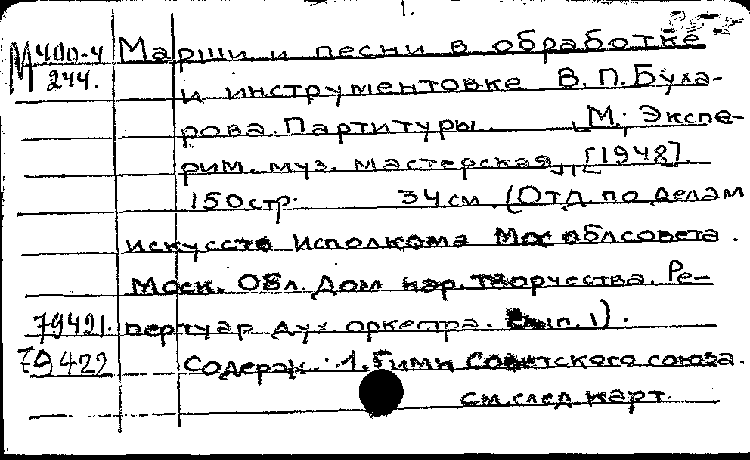 1.
М 400-4 Марши и песни в обработке
244. и инструментовке В.П.Була-
рова. Партитуры. М., Экспе-
рим. муз. мастерская, [1948].
150стр. 34см. (Отд. по делам
искусств Исполкома Мособлсовета.
Моск. Обл. Дом нар. творчества. Ре-
79421. пертуар дух оркестра. Вып. 1).
79422 Содерж.: 1. Гимн Советского союза.
см. след. карт.